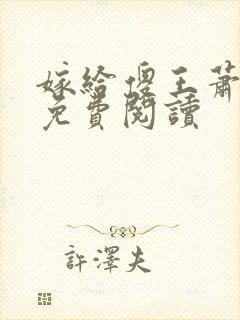 嫁給傻王蕭
免費閱讀
許澤夫